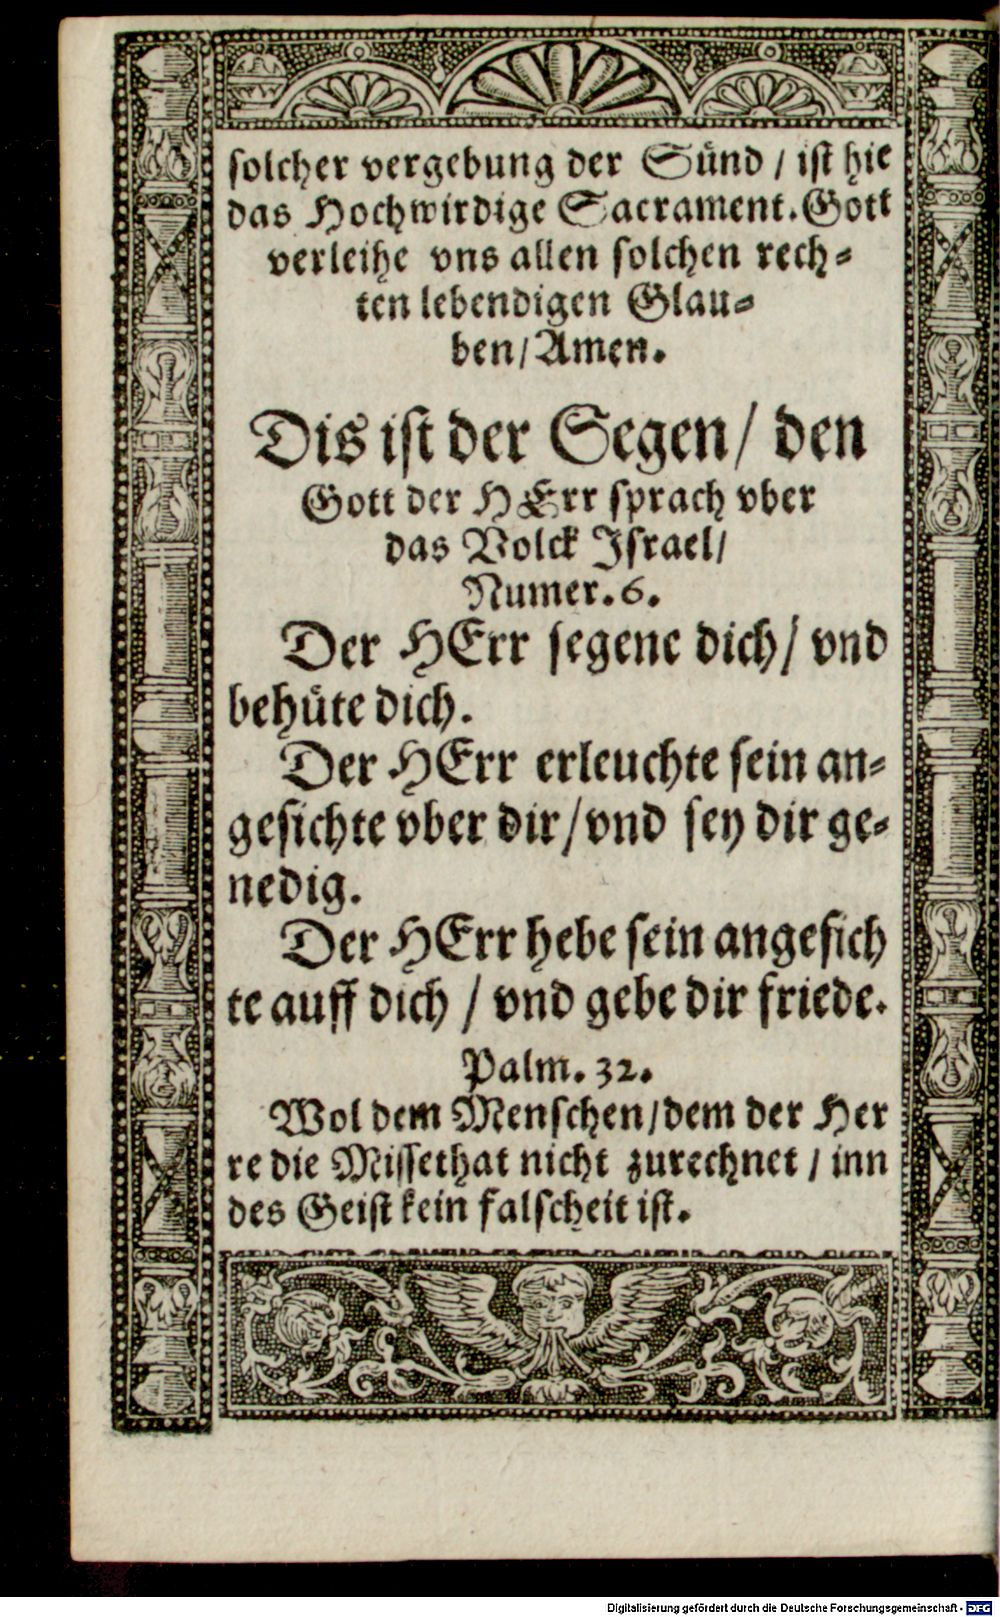 solcher vergebung der Sünd / ist hie
das Hochwirdige Sacrament. Gott
verleihe vns allen solchen rech⸗
ten lebendigen Glau⸗
ben / Amen.
Dis ist der Segen / den
Gott der HErr sprach vber
das Volck Israel /
Numer. 6.
Der HErr segene dich / vnd
behüte dich.
Der HErr erleuchte sein an⸗
gesichte vber dir / vnd sey dir ge⸗
nedig.
Der HErr hebe sein angesich
te auff dich / vnd gebe dir friede.
Palm. 32.
Wol dem Menschen / dem der Her
re die Missethat nicht zurechnet / inn
des Geist kein falscheit ist.
Digitalisierung gefördert durch die Deutsche Forschungsgemeinschaft - DFG